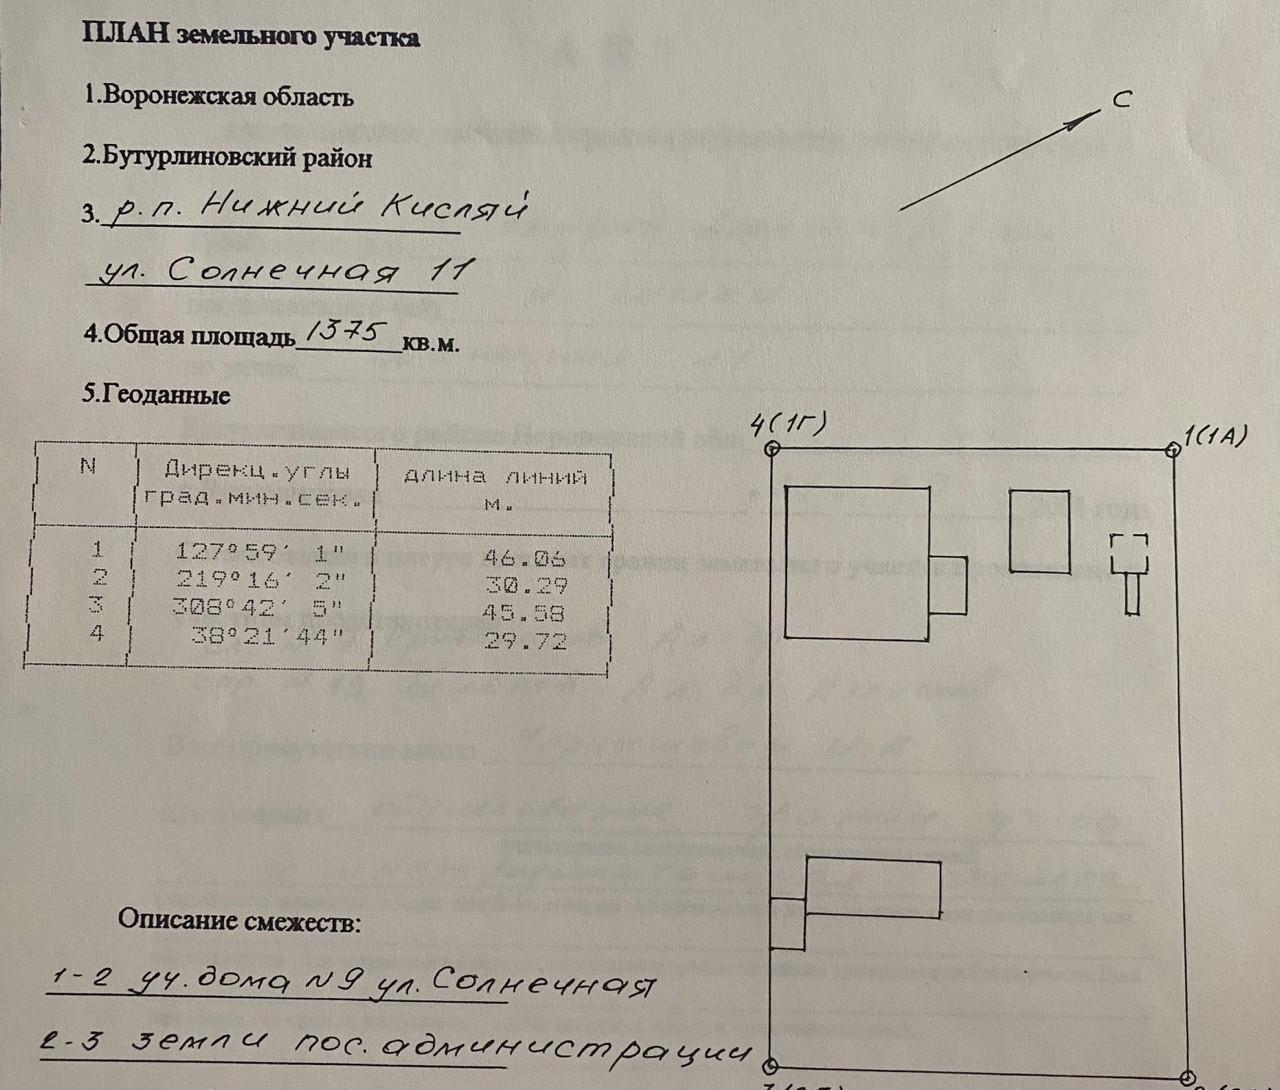 ПЛАН земельного участка
1.Воронежская область
С
2.Бутурлиновский район
3. р.п. Нижний Кисляй
ул. Солнечная 11
4.Общая площадь 1375 кв.м.
5.Геоданные
4(1Г)
1(1А)
N Дирекц.углы град.мин.сек. длина линий м.
1 127°59′ 1" 46.06
2 219°16′ 2" 30.29
3 308°42′ 5" 45.58
4 38°21′44" 29.72
Описание смежеств:
1-2 уч. дома N9 ул. Солнечная
2-3 земли пос. администрации